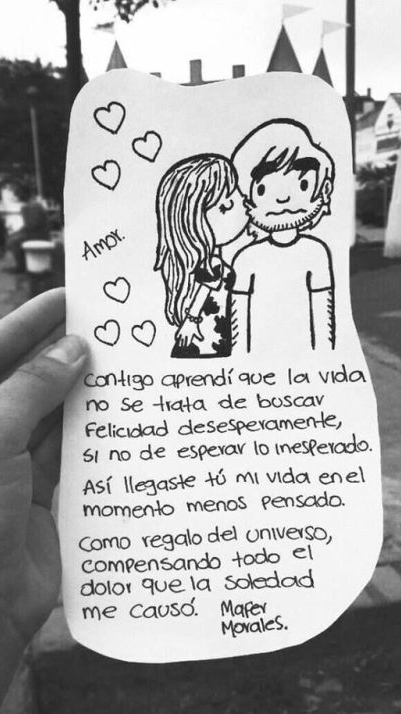 Amor.
Contigo aprendí que la vida
no se trata de buscar
Felicidad desesperamente,
si no de esperar lo inesperado.
Así llegaste tú mi vida en el
momento menos pensado.
Como regalo del universo,
compensando todo el
dolor que la soledad
me causó. Mafer
Morales.